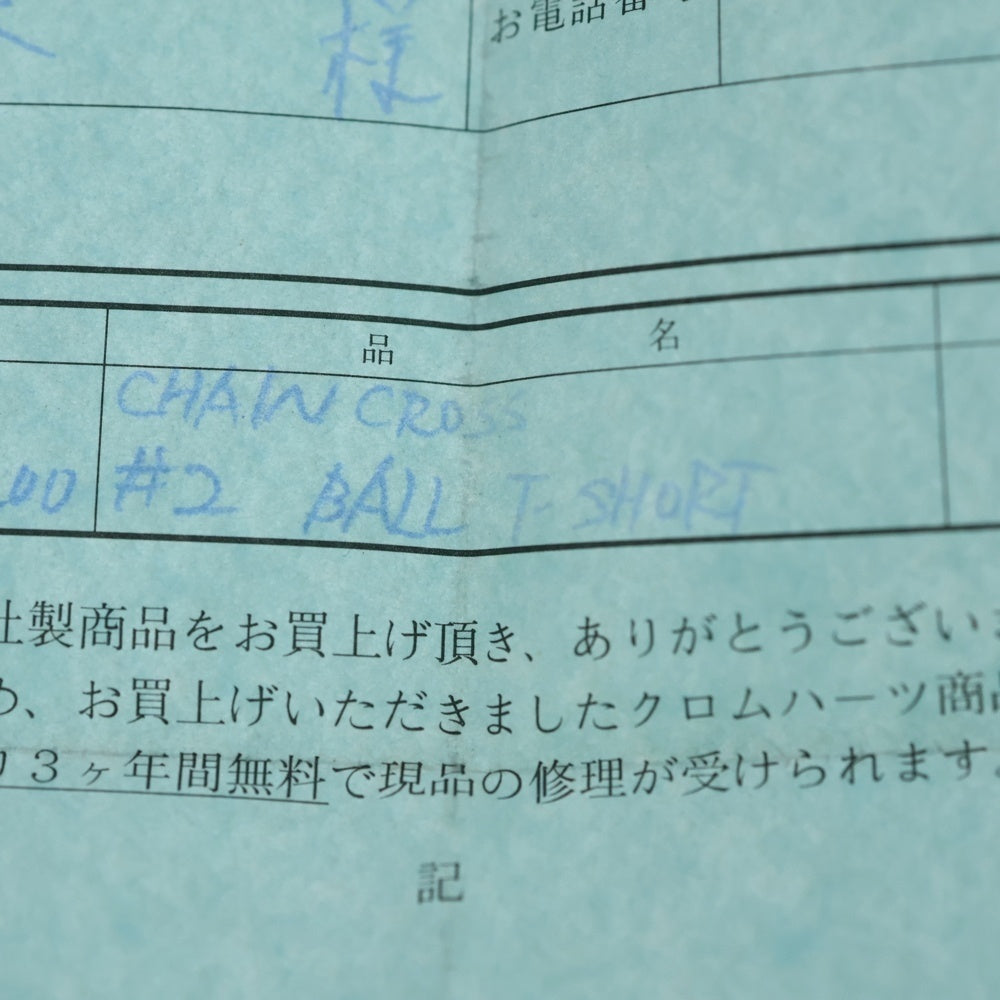 様 お電話番号
品名
CHAIN CROSS
00 #2 BALL T-SHORT
社製商品をお買上げ頂き、ありがとうござい
め、お買上げいただきましたクロムハーツ商品
り３ヶ年間無料で現品の修理が受けられます。
記